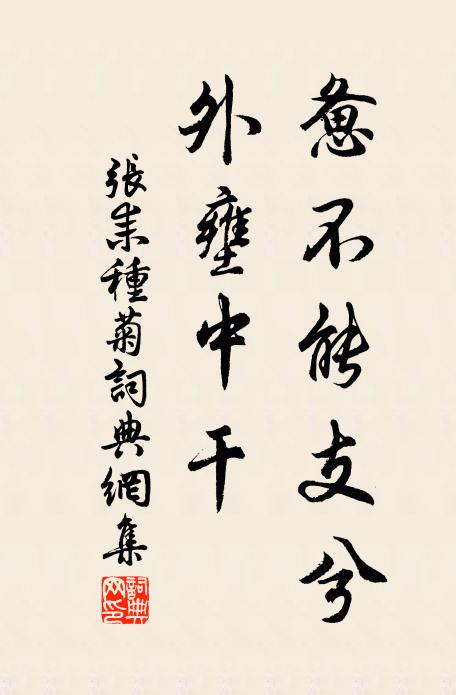 惫不能支兮
外壅中干
張耒種菊詞典網集
詞典网印